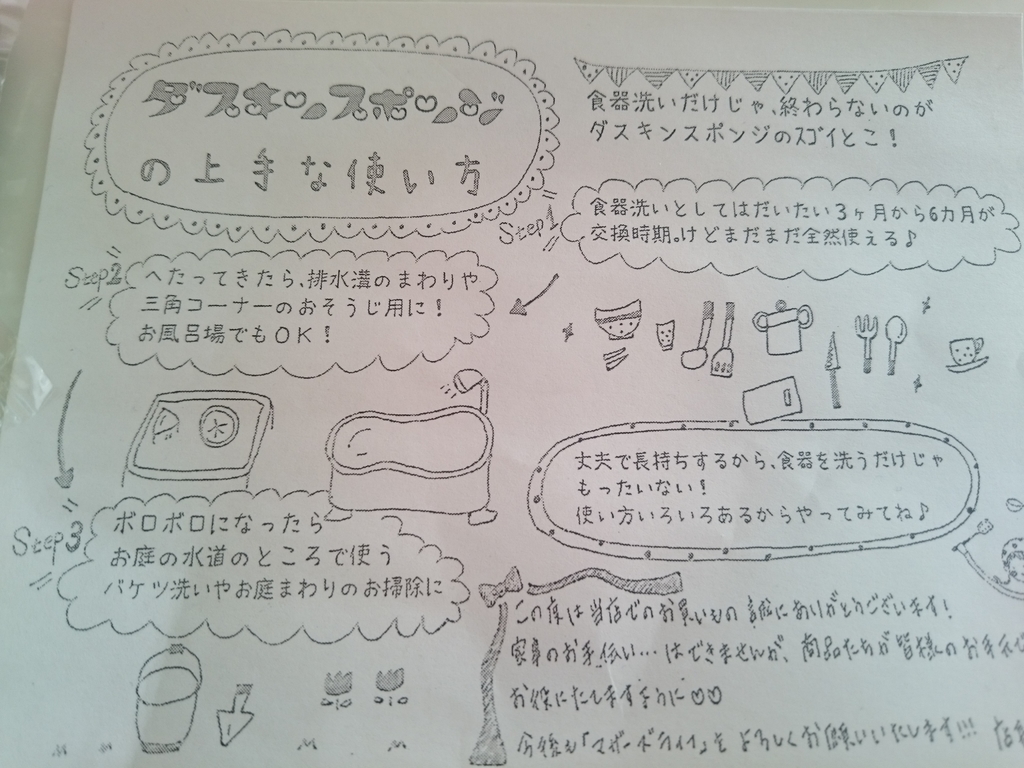 ダスキンスポンジ
の上手な使い方
食器洗いだけじゃ、終わらないのが
ダスキンスポンジのスゴイとこ!
Step1
食器洗いとしてはだいたい3ヶ月から6カ月が
交換時期。けどまだまだ全然使える♪
Step2
へたってきたら、排水溝のまわりや
三角コーナーのおそうじ用に!
お風呂場でもOK!
Step3
ボロボロになったら
お庭の水道のところで使う
バケツ洗いやお庭まわりのお掃除に
丈夫で長持ちするから、食器を洗うだけじゃ
もったいない!
使い方いろいろあるからやってみてね♪
この度は当店でのお買いもの誠にありがとうございます!
家事のお手伝い…はできませんが、商品たちが皆様のお手元で
お役にたてますように♡♡
今後も「マザードライブ」をよろしくお願いいたします!!!